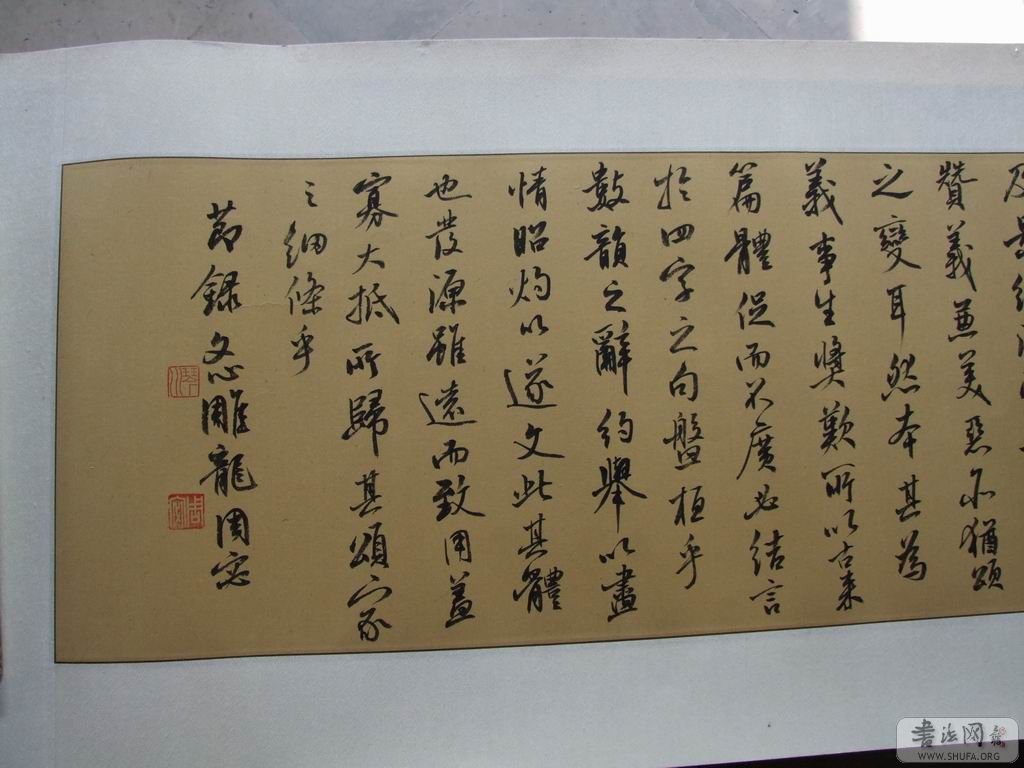 贊義兼美惡亦猶頌
之變耳然本其為
義事生獎歎所以古來
篇體促而不廣必結言
於四字之句盤桓乎
數韻之辭約舉以盡
情昭灼以遂文此其體
也發源雖遠而致用蓋
寡大抵所歸其頌家
之細條乎
節錄文心雕龍周宓
書法网
WWW.SHUFA.ORG